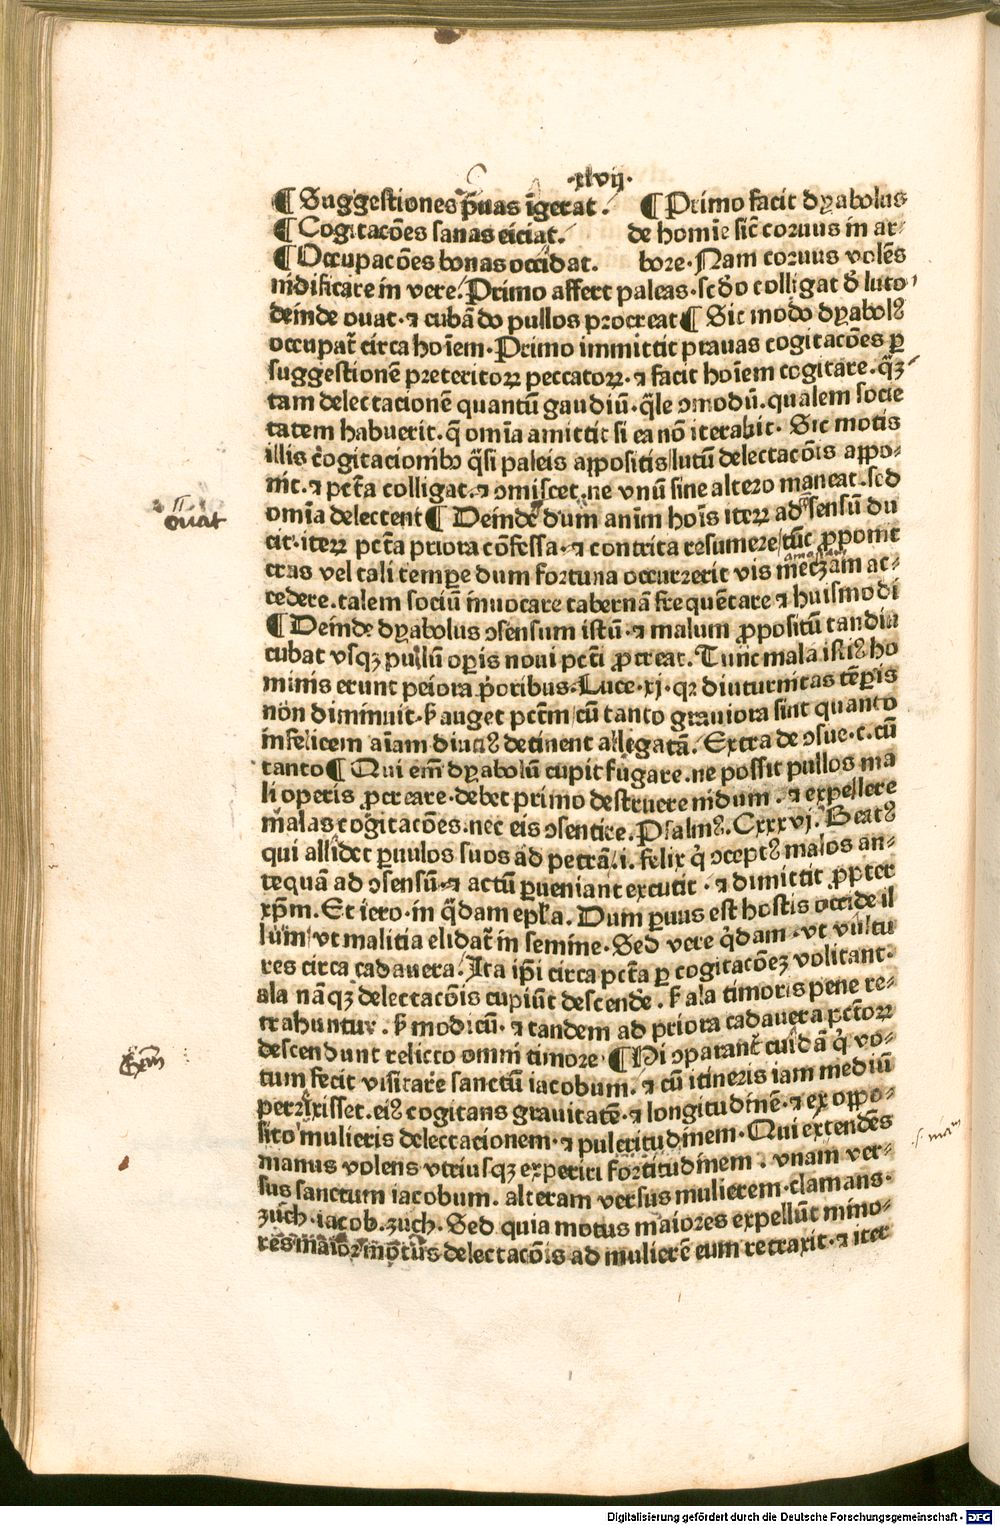 ·xlvij·
¶ Suggestiones p̄uas īgerat. ¶ Primo facit dyabolus
¶ Cogitacōes sanas eiciat. de homīe sic̄ coruus in ar-
¶ Occupacōes bonas occidat. bore. Nam coruus volēs
nidificare in vere. Primo affert paleas. scd̓o colligat d̓ luto
deinde ouat. ⁊ cubādo pullos procreat ¶ Sic modo dyabolꝰ
occupat̄ circa hoīem. Primo immittit prauas cogitacōes ꝑ
suggestionē preteritoꝝ peccatoꝝ. ⁊ facit hoīem cogitare. q̄ꝫ
tam delectacionē quantū gaudiū. q̄le ↄmodū. qualem socie
tatem habuerit. q̄ omīa amittit si ea nō iterabit. Sic motis
illis cogitacionibꝰ q̄si paleis appositis lutū delectacōis appo-
nit. ⁊ pct̄a colligat. ⁊ ↄmiscet. ne vnū sine altero maneat. sed
omīa delectent ¶ Deinde dum anim̄ hoīs iteꝝ ad sensū du
cit. iteꝝ pct̄a priora cōfessa. ⁊ contrita resumere tūc ꝓponit
cras vel tali tempe dum fortuna occurrerit vis metꝫam ac-
cedere. talem sociū inuocare tabernā frequētare ⁊ huismodi
¶ Deinde dyabolus ↄsensum istū. ⁊ malum ꝓpositū tandiu
cubat vsqꝫ pullū oꝑis noui pct̄i ꝓcreat. Tunc mala istiꝰ ho
minis erunt peiora p̓oribus. Luce. xj. qꝛ diuturnitas tēꝑis
non diminuit. ß auget pct̄m cū tanto grauiora sint quanto
infelicem aīam diutiꝰ detinent alligatā. Extra de ↄsue. c. cū
tanto ¶ Qui em̄ dyabolū cupit fugare. ne possit pullos ma
li operis ꝓcreare. debet primo destruere nidum. ⁊ expellere
malas cogitacōes. nec eis ↄsentire. Psalmꝰ. Cxxxvj. Beatꝰ
qui allidet ꝑuulos suos ad petrā. i. felix q̓ ↄceptꝰ malos an-
tequā ad ↄsensū. ⁊ actū ꝑueniant excutit. ⁊ dimittit ꝓpter
xp̄m. Et iero. in q̄dam epl̄a. Dum ꝑuus est hostis occide il
lum vt malitia elidat̄ in semine. Sed vere q̓dam. vt vultu
res circa cadauera. Ita ip̄i circa pct̄a ꝑ cogitacōeꝫ volitant.
ala nāqꝫ delectacōis cupiūt descende. ß ala timoris pene re-
trahuntur. ß modicū. ⁊ tandem ad priora cadauera pct̄oꝝ
descendunt relicto omni timore. ¶ Hi ↄparant̄ cuidā q̓ vo-
tum fecit visitare sanctū iacobum. ⁊ cū itineris iam mediū
perrexisset. eiꝰ cogitans grauitatē. ⁊ longitudinē. ⁊ ex oppo-
sito mulieris delectacionem. ⁊ pulcritudinem. Qui extendēs
manus volens vtriusqꝫ experiri fortitudinem. vnam ver-
sus sanctum iacobum. alteram versus mulierem. clamans.
zuch. iacob. zuch. Sed quia motus maiores expellūt mino-
res maior motus delectacōis ad mulierē eum retraxit. ⁊ iter
ouat